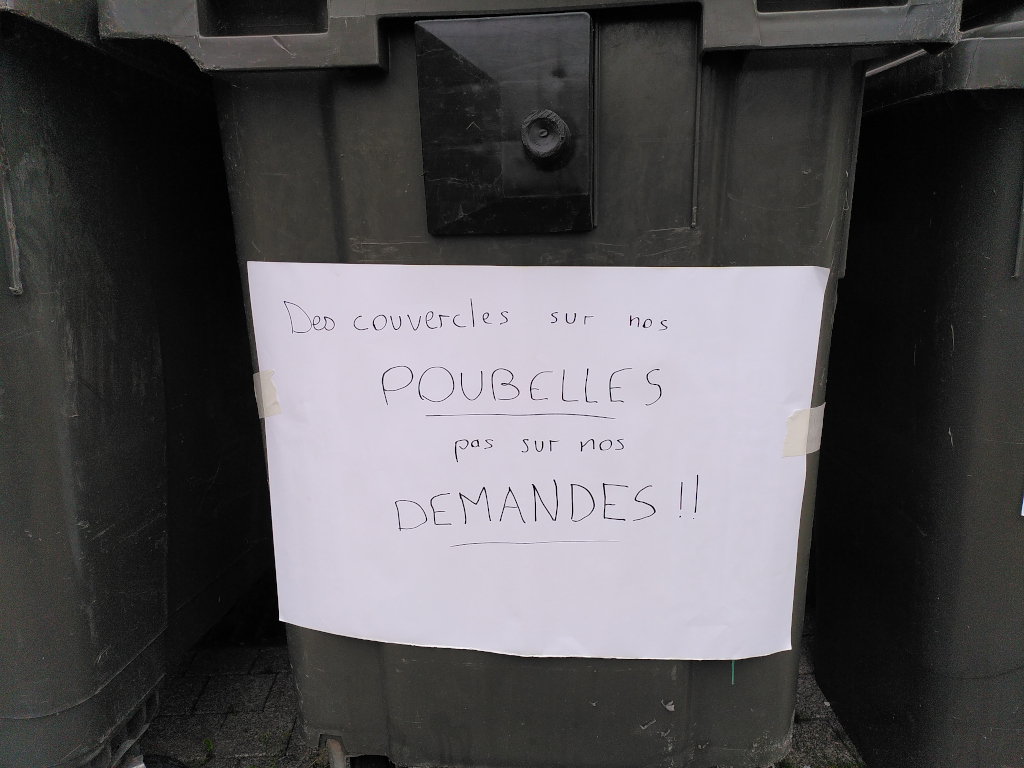 Des couvercles sur nos
POUBELLES
pas sur nos
DEMANDES !!